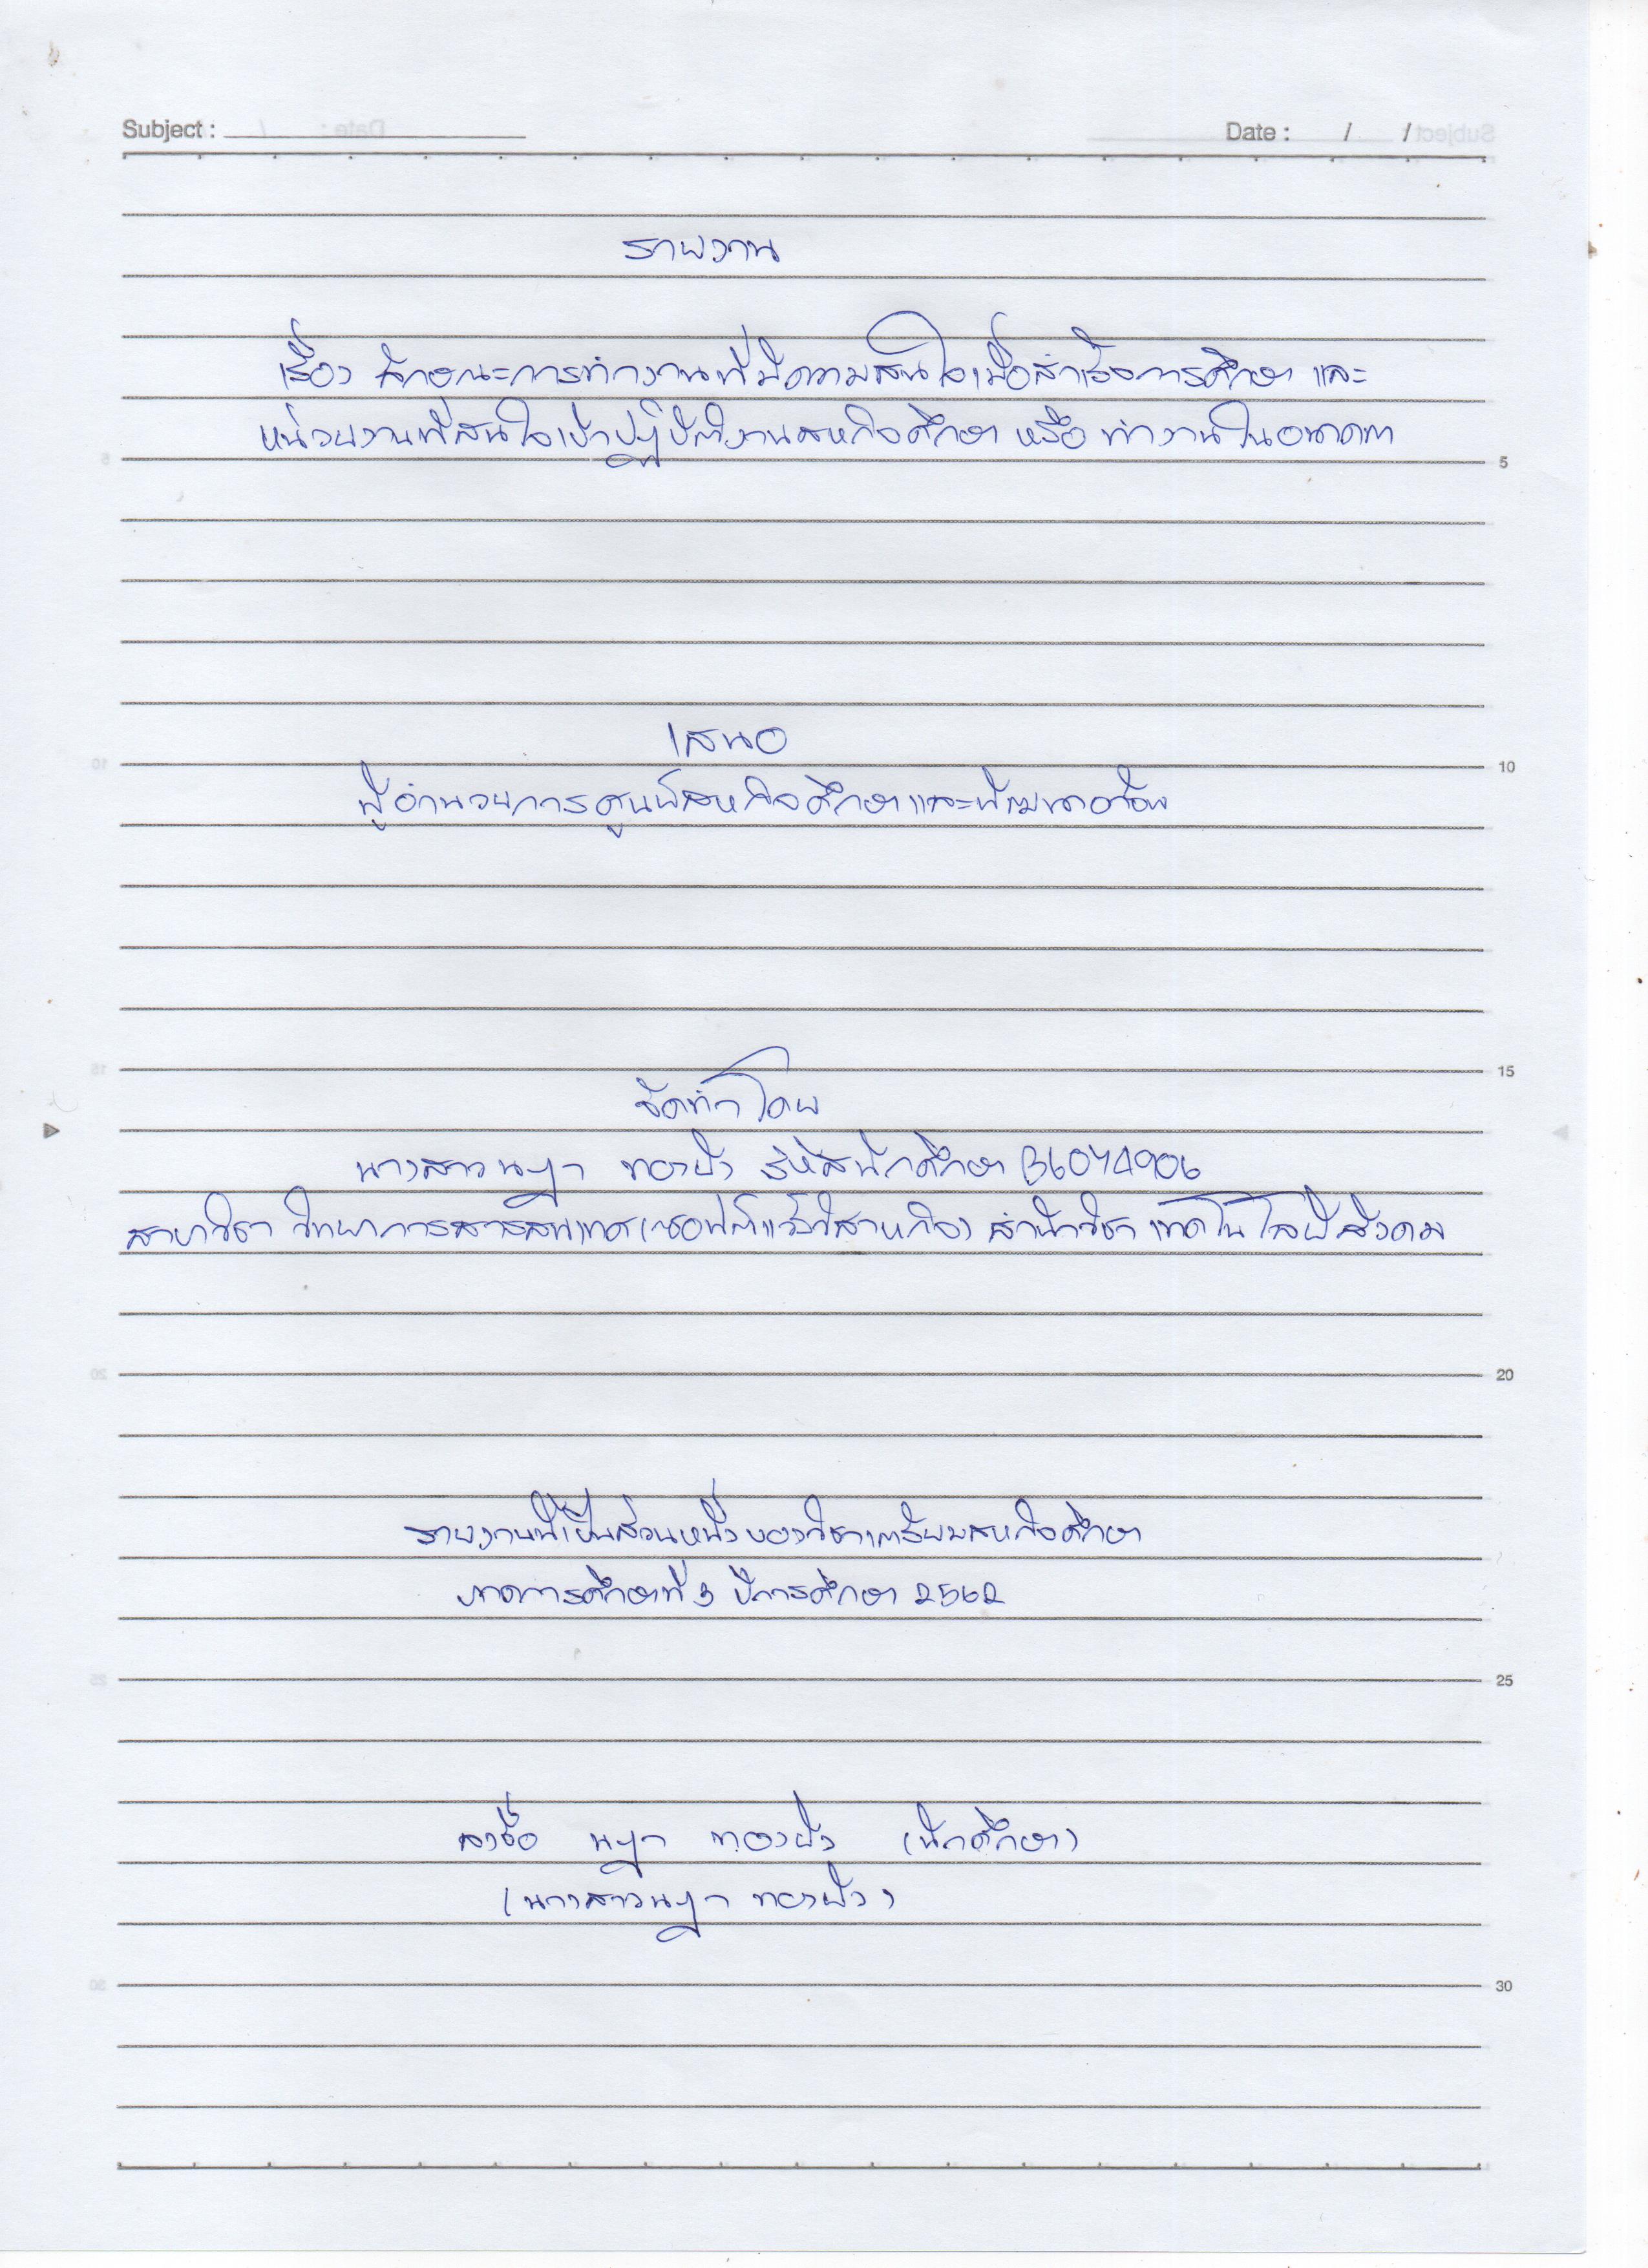 Subject : Date : / /
รายงาน
เรื่อง ลักษณะการทำงานที่มีความสนใจเมื่อสำเร็จการศึกษา และ
หน่วยงานที่สนใจเข้าปฏิบัติงานสหกิจศึกษา หรือ ทำงานในอนาคต
5
เสนอ
10
ผู้อำนวยการศูนย์สหกิจศึกษาและพัฒนาอาชีพ
15
จัดทำโดย
นางสาว ทองยัง รหัสนักศึกษา B6074906
สาขาวิชา วิทยาการสารสนเทศ (ซอฟต์แวร์วิสาหกิจ) สำนักวิชา เทคโนโลยีสังคม
20
รายงานนี้เป็นส่วนหนึ่งของวิชาเตรียมสหกิจศึกษา
ภาคการศึกษาที่ 3 ปีการศึกษา 2562
25
ลงชื่อ ทองยัง (นักศึกษา)
(นางสาว ทองยัง)
30